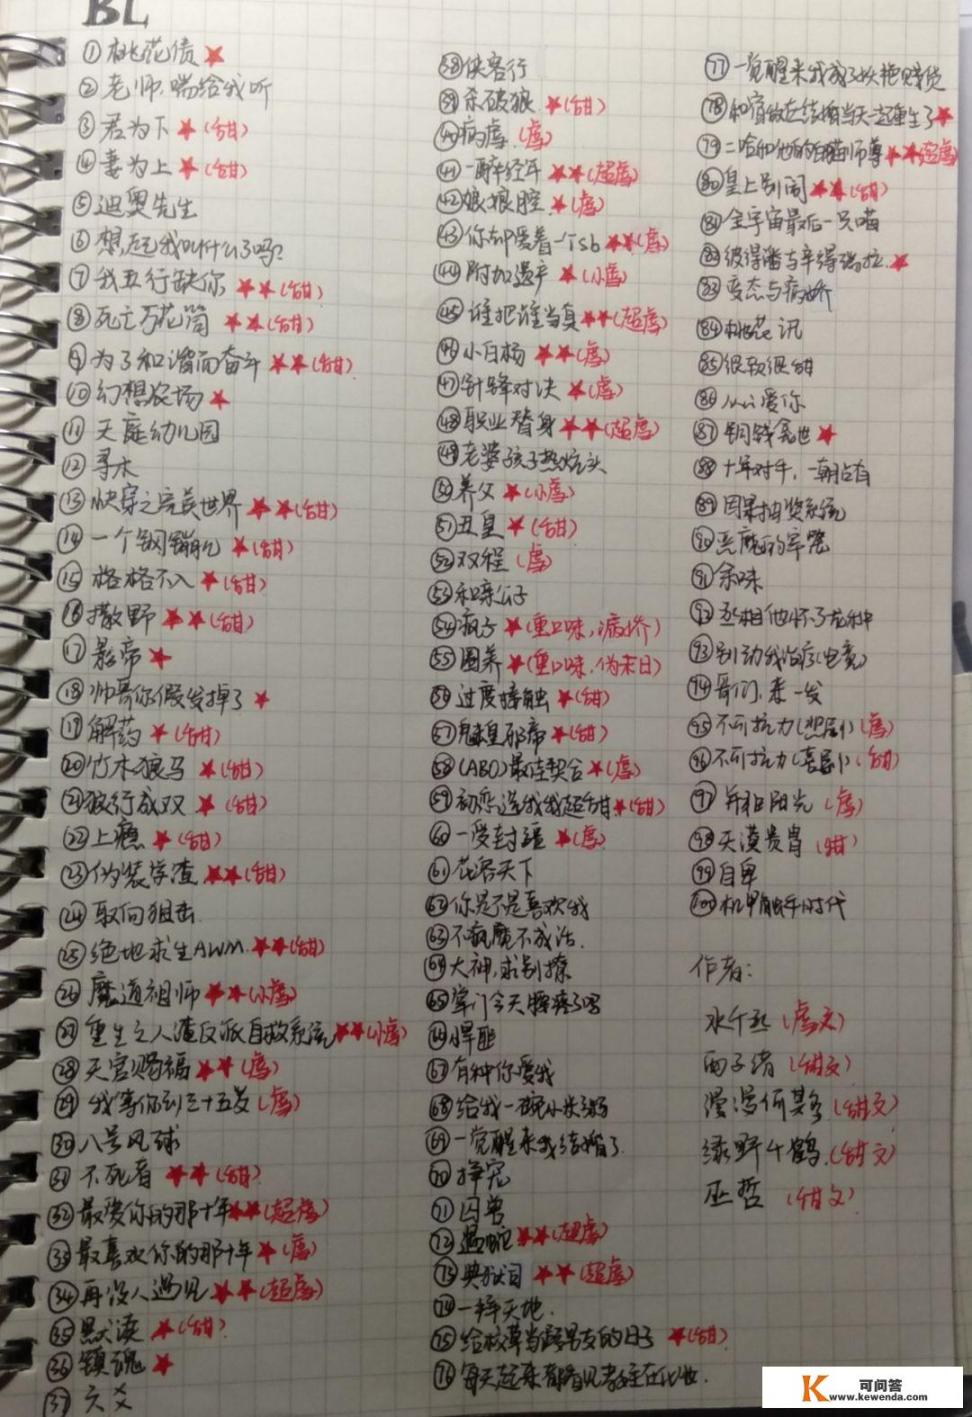 BL
①桃花债★
②老师,喘给我听
③君为下★(甜)
④妻为上★(甜)
⑤迪奥先生
⑥想起我叫什么了吗?
⑦我五行缺你★★(甜)
⑧死亡万花筒★★(甜)
⑨为了和谐而奋斗★★(甜)
⑩幻想农场★
⑪天庭幼儿园
⑫寻木
⑬快穿之完美世界★★(甜)
⑭一个钢镚儿★(甜)
⑮格格不入★(甜)
⑯撒野★★(甜)
⑰影帝★
⑱帅哥你假发掉了★
⑲解药★(甜)
⑳竹木狼马★(甜)
㉑狼行成双★(甜)
㉒上瘾★(甜)
㉓伪装学渣★★(甜)
㉔取向狙击
㉕绝地求生AWM.★★(甜)
㉖魔道祖师★★(小虐)
㉗重生之人渣反派自救系统★★(小虐)
㉘天官赐福★★(虐)
㉙我等你到三十五岁(虐)
㉚八号风球
㉛不死者★★(甜)
㉜最爱你的那十年★★(超虐)
㉝最喜欢你的那十年★(虐)
㉞再没人遇见★★(超虐)
㉟默读★(甜)
㊱镇魂★
㊲六爻
㊳侠客行
㊴杀破狼★(甜)
㊵病虐.(虐)
㊶一醉经年★★(超虐)
㊷娘娘腔★(虐)
㊸你却爱着一个sb★★(虐)
㊹附加遗产★(小虐)
㊺谁把谁当真★★(超虐)
㊻小白杨★★(虐)
㊼针锋对决★(虐)
㊽职业替身★★(超虐)
㊾老婆孩子热炕头
㊿养父★(小虐)
51丑皇★(甜)
52双程(虐)
53和亲公子
54疯子★(重口味,病娇)
55圈养★(重口味,伪末日)
56过度接触★(甜)
57魅皇邪帝★(甜)
58(ABO)最佳契合★(虐)
59初恋选我我超甜★(甜)
60一受封疆★(虐)
61花容天下
62你是不是喜欢我
63不疯魔不成活.
64大神,求别撩
65掌门今天腰疼了吗
66悍匪
67有种你爱我
68给我一碗小米粥
69一觉醒来我结婚了.
70择宠
71囚兽
72遇蛇★★(超虐)
73典狱司★★(超虐)
74一样天地.
75给校草当假男友的日子★(甜)
76每天起来都看见教主在化妆.
77一觉醒来我成了拖赎货
78和宿敌在结婚当天一起重生了★
79二哈和他的白猫师尊★★(超虐)
80皇上别闹★★(甜)
81全宇宙最后一只喵
82彼得潘与辛得瑞拉.★
83变态与病娇
84桃花讯
85很软很甜
86从心爱你
87铜钱龛世★
88十年对手,一朝占有
89因果抽奖系统
90恶魔的牢笼
91余味
92丞相他怀了龙种
93别动我治疗(电竞)
94哥们,来一发
95不可抗力(悲剧)(虐)
96不可抗力(喜剧)(甜)
97并租阳光(虐)
98天漠贵胄(甜)
99自卑
100机甲触手时代
作者:
水千丞(虐文)
西子绪(甜文)
漫漫何其多(甜文)
绿野千鹤.(甜文)
巫哲(甜文)
K 可问答
www.kewenda.com